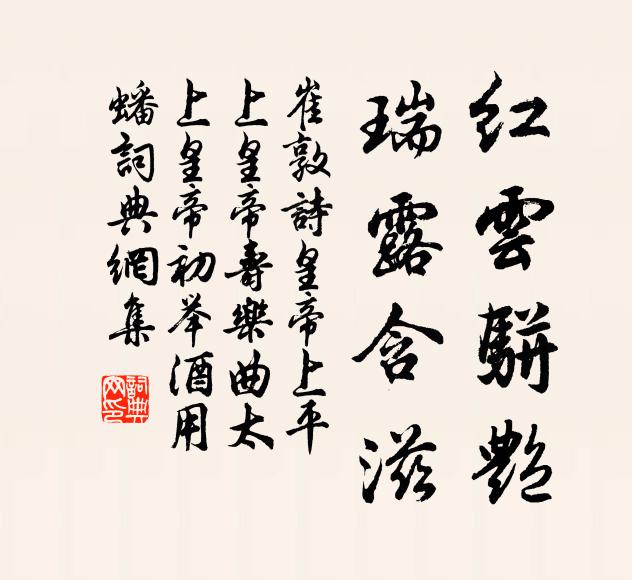 紅雲駢艷
瑞露含滋
崔敦詩皇帝上平
上皇帝壽樂曲太
上皇帝初举酒用
蟠詞典網集
詞典網印